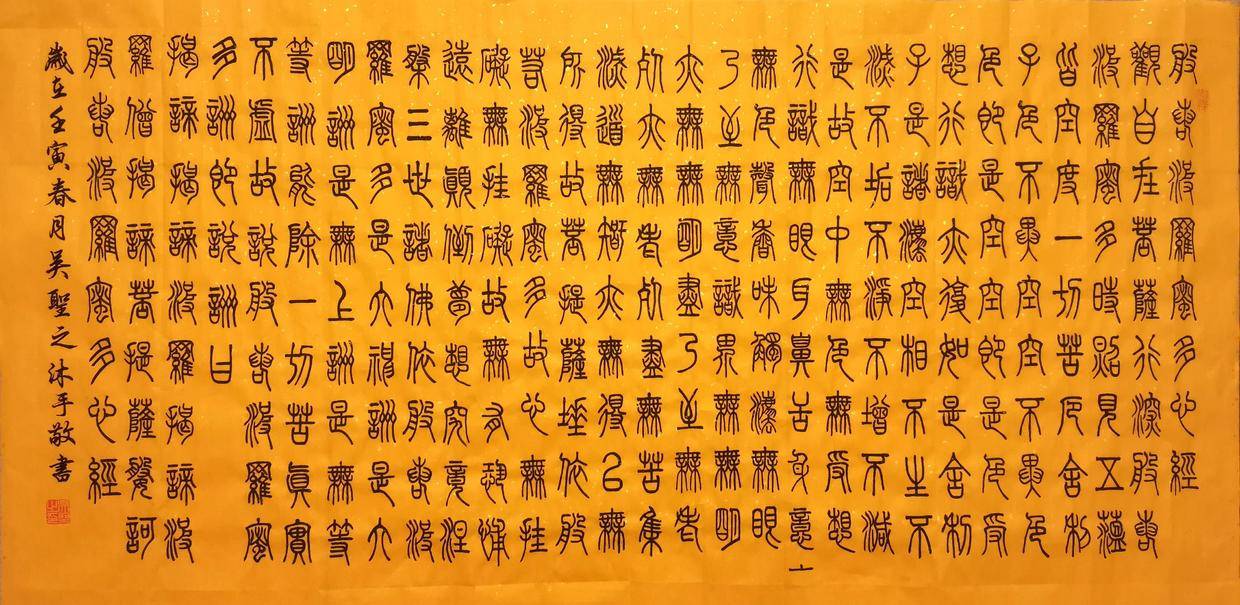 般若波羅蜜多心經
觀自在菩薩行深般若
波羅蜜多時照見五蘊
皆空度一切苦厄舍利
子色不異空空不異色
色即是空空即是色受
想行識亦復如是舍利
子是諸法空相不生不
滅不垢不淨不增不減
是故空中無色無受想
行識無眼耳鼻舌身意
無色聲香味觸法無眼
乃至無意識界無無明
亦無無明盡乃至無老
死亦無老死盡無苦集
滅道無智亦無得以無
所得故菩提薩埵依般
若波羅蜜多故心無罣
礙無罣礙故無有恐怖
遠離顛倒夢想究竟涅
槃三世諸佛依般若波
羅蜜多是大神詶是大
明詶是無上詶是無等
等詶能除一切苦真實
不虛故說般若波羅蜜
多詶即說詶曰
揭諦揭諦波羅揭諦波
羅僧揭諦菩提薩婆訶
般若波羅蜜多心經
歲在壬寅春月吳聖之沐手敬書